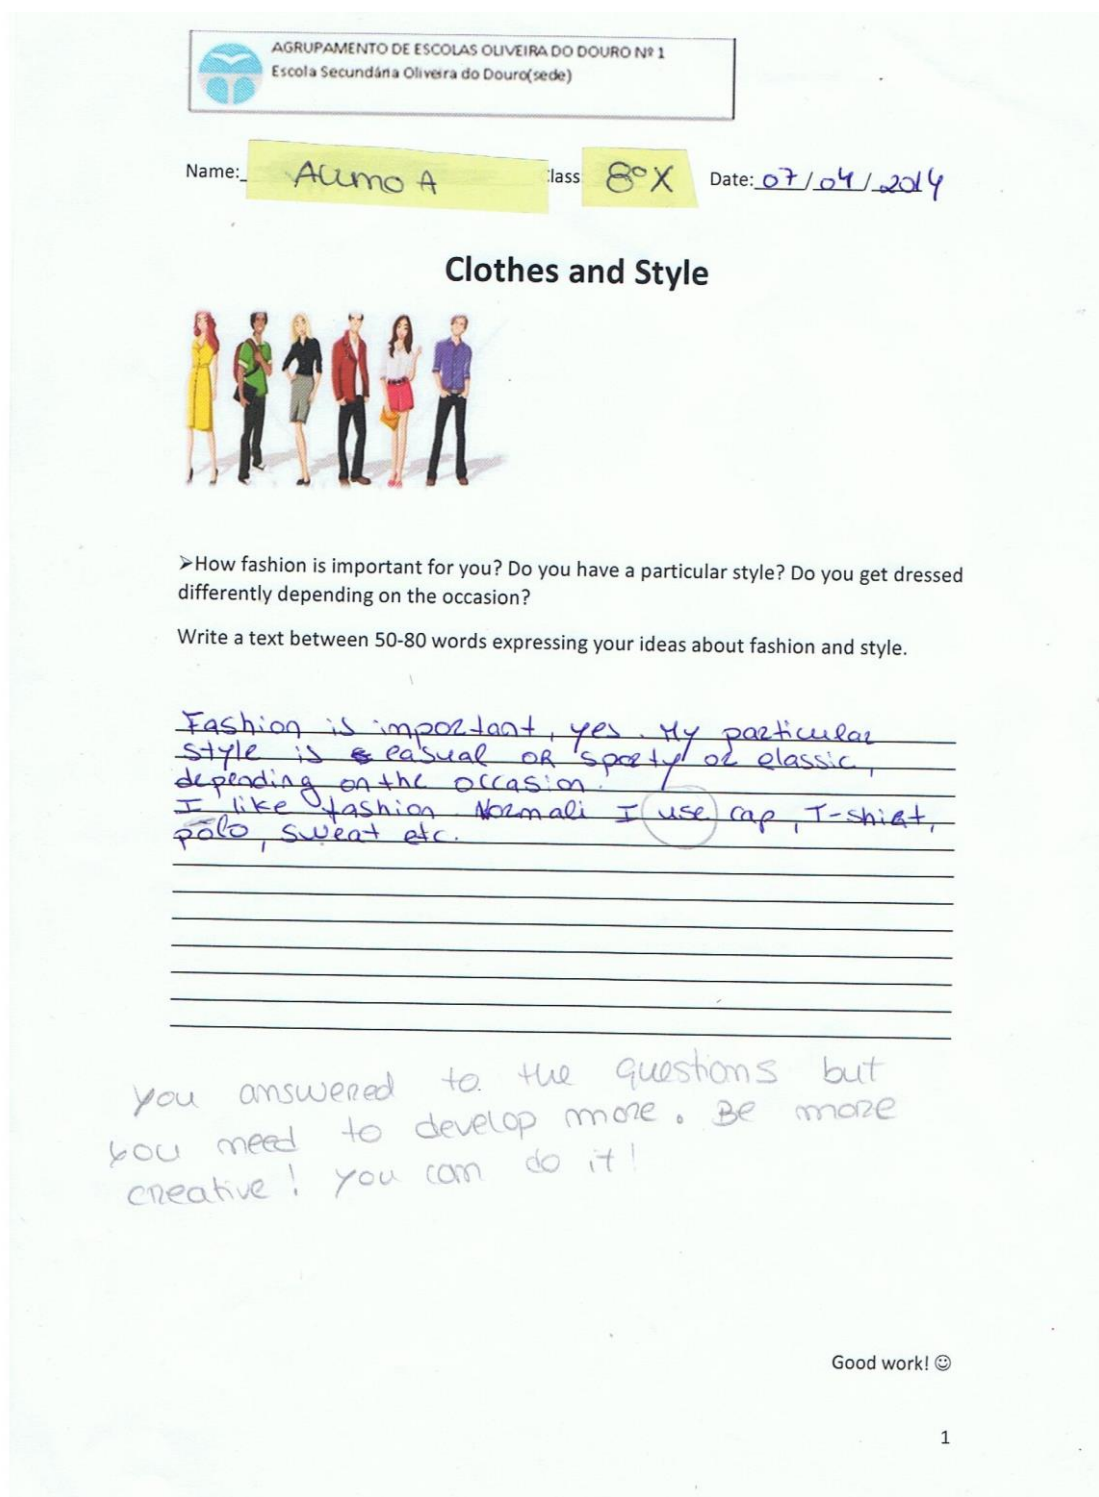 AGRUPAMENTO DE ESCOLAS OLIVEIRA DO DOURO Nº 1
Escola Secundária Oliveira do Douro(sede)
Name:_ Aluno A lass 8º X Date: 07/04/2014
Clothes and Style
➢How fashion is important for you? Do you have a particular style? Do you get dressed
differently depending on the occasion?
Write a text between 50-80 words expressing your ideas about fashion and style.
Fashion is important, yes. My particular
style is casual or sporty or classic,
depending on the occasion.
I like fashion. Normali I use cap, T-shirt,
pólo, sweat etc.
You answered to the questions but
you need to develop more. Be more
creative! You can do it!
Good work! ☺
1